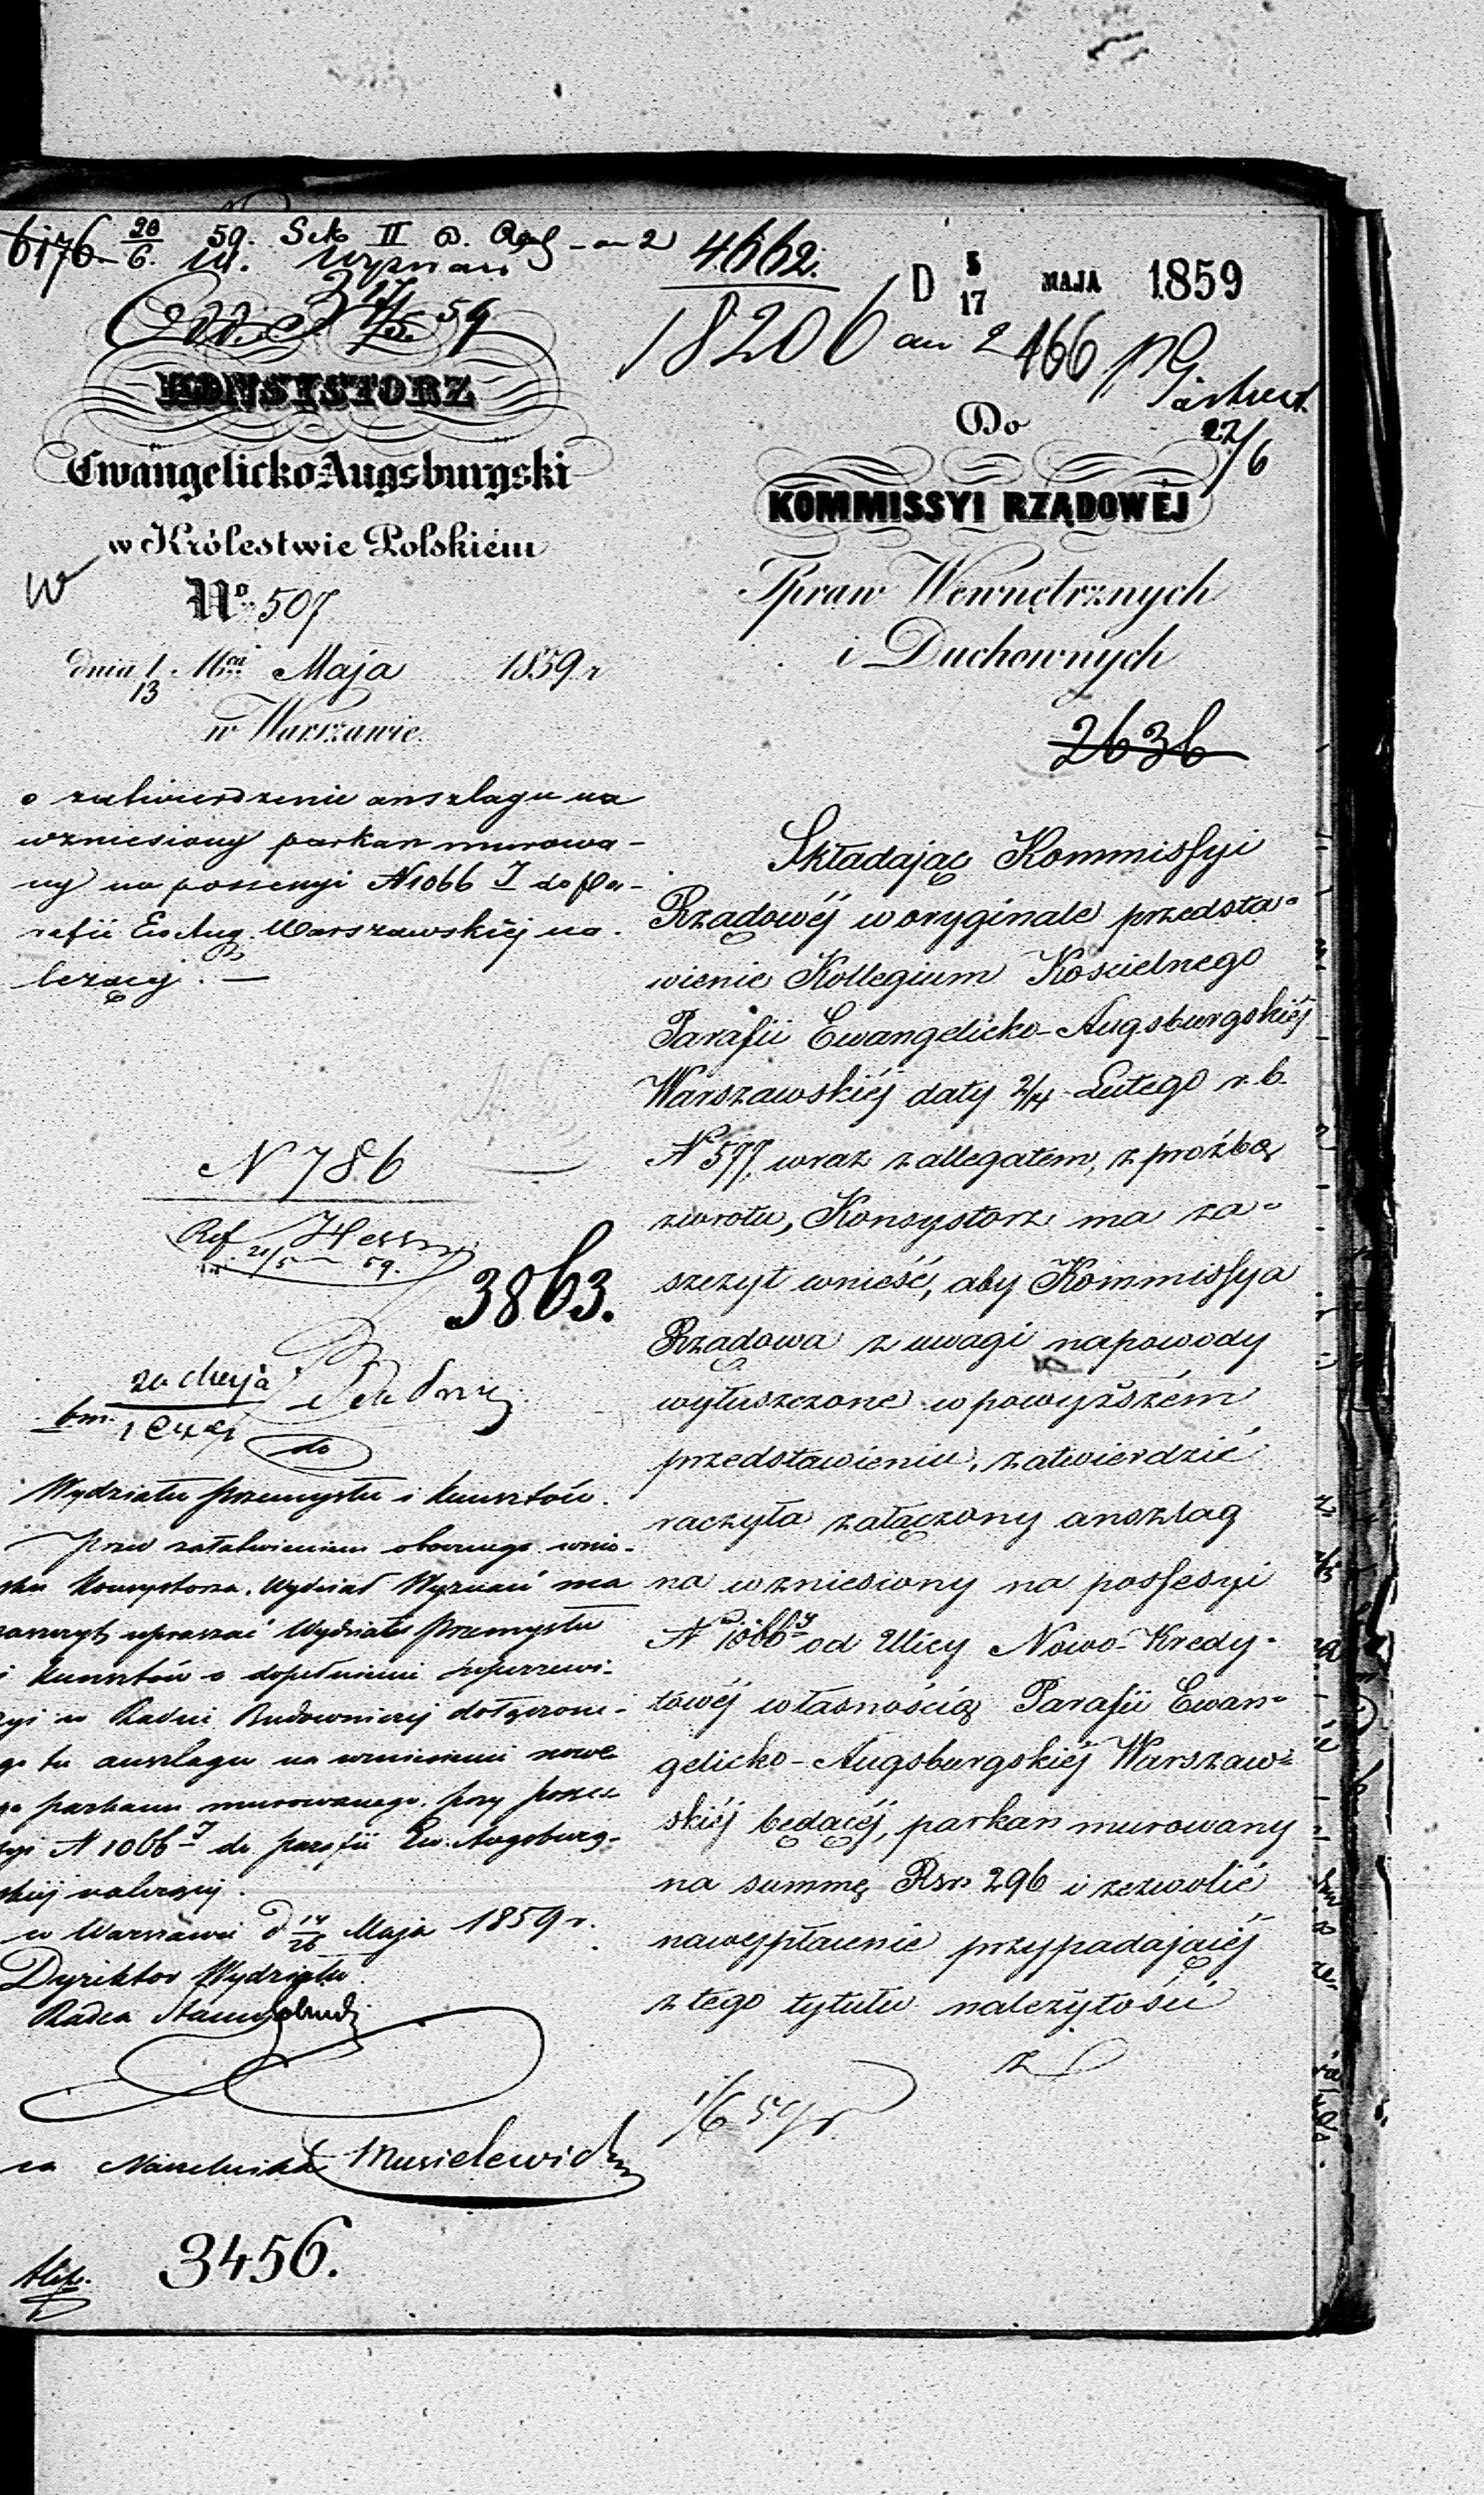 6176 20/6. 59. Sek II
4662.
D 5/17 MAJA 1859
18206 an 2 466
27/6
KONSYSTORZ
Ewangelicko Augsburgski
w Królestwie Polskiém
No 507
dnia 1/13 Maja 1859 r
w Warszawie.
o zatwierdzenie anszlagu na
wzniesiony parkan murowa-
ny na possessyi N 1066 J do Pa-
rafii Ew Aug. Warszawskiéj na-
leżący. —
N 786
Ref Hessen
21/5 59.
3863.
do
Wydziału Przemysłu i Kunsztów.
Przed załatwieniem obecnego wnio-
sku Konsystorza, Wydział Wyznań ma
zaszczyt upraszać Wydziału Przemysłu
i Kunsztów o dopełnienie superrewi-
zyi w Radzie Budowniczej dołączone-
go tu anszlagu na wzniesienie nowe
go parkanu murowanego przy posse
syi N 1066 J do parafii Ew. Augsburg-
skiéj należącej.
w Warszawie d 14/26 Maja 1859 r.
Dyrektor Wydziału
Radca Stanu
za Naczelnika Musielewicz
3456.
Do
KOMMISSYI RZĄDOWÉJ
Spraw Wewnętrznych
i Duchownych
2636
Składając Kommissyi
Rządowéj w oryginale przedsta-
wienie Kollegium Kościelnego
Parafii Ewangelicko-Augsburgskiéj
Warszawskiéj daty 2/14 Lutego r. b.
N 577, wraz z allegatem, z proźbą
zwrotu, Konsystorz ma za-
szczyt wnieść, aby Kommissya
Rządowa z uwagi na powody
wyłuszczone w powyższém
przedstawieniu, zatwierdzić
raczyła załączony anszlag
na wzniesiony na possesyi
N 1066 J od Ulicy Nowo-Kredy-
towéj własnością Parafii Ewan-
gelicko-Augsburgskiéj Warszaw-
skiéj będącéj, parkan murowany
na summę Rsr 296 i zezwolić
na wypłacenie przypadającéj
z tego tytułu należytości
z
1/6 59 r